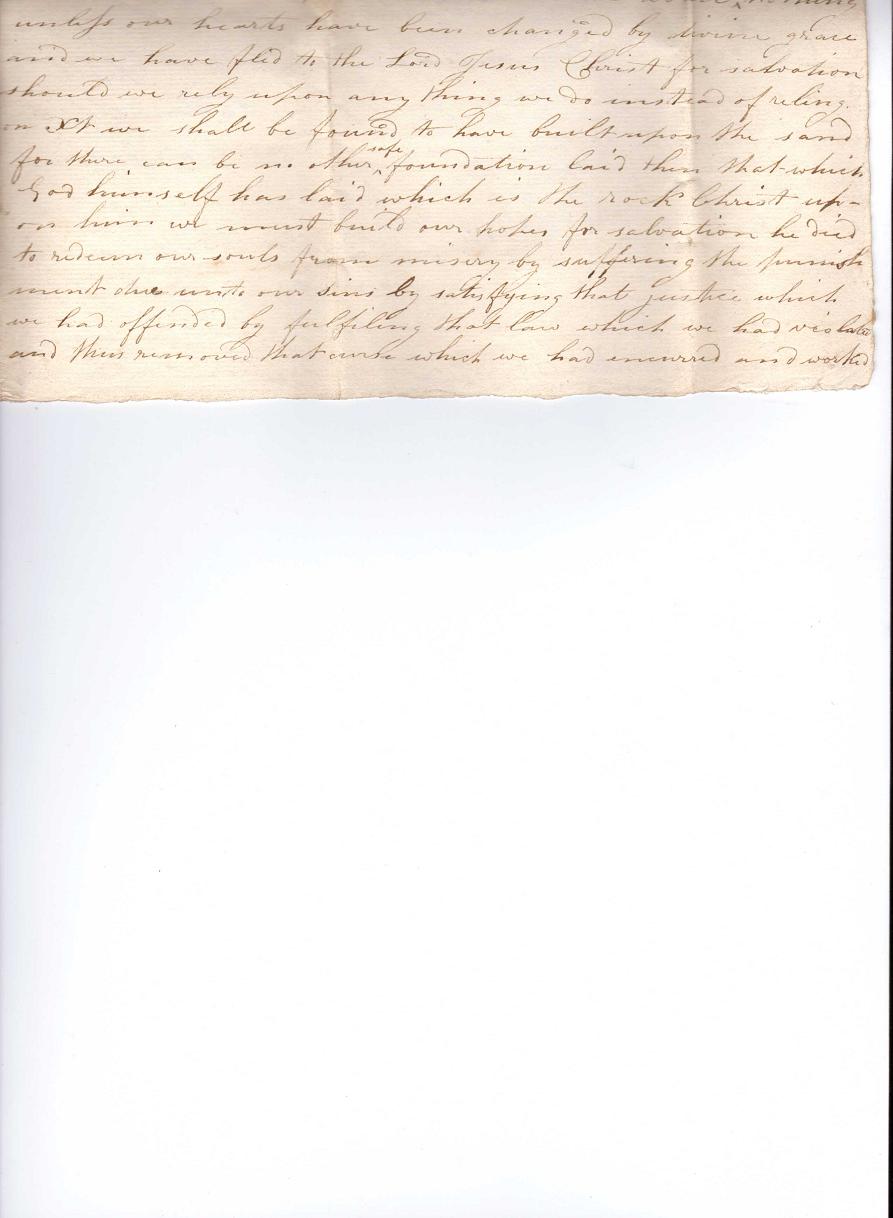 nothing
unless our hearts have been changed by divine grace
and we have fled to the Lord Jesus Christ for salvation
should we rely upon any thing we do instead of reling
on Xt we shall be found to have built upon the sand
for there can be no other safe foundation laid then that which
God himself has laid which is the rock Christ up-
on him we must build our hopes for salvation he died
to redeem our souls from misery by suffering the punish
ment due unto our sins by satisfying that justice which
we had offended by fulfiling that law which we had violated
and thus removed that curse which we had incurred and worked